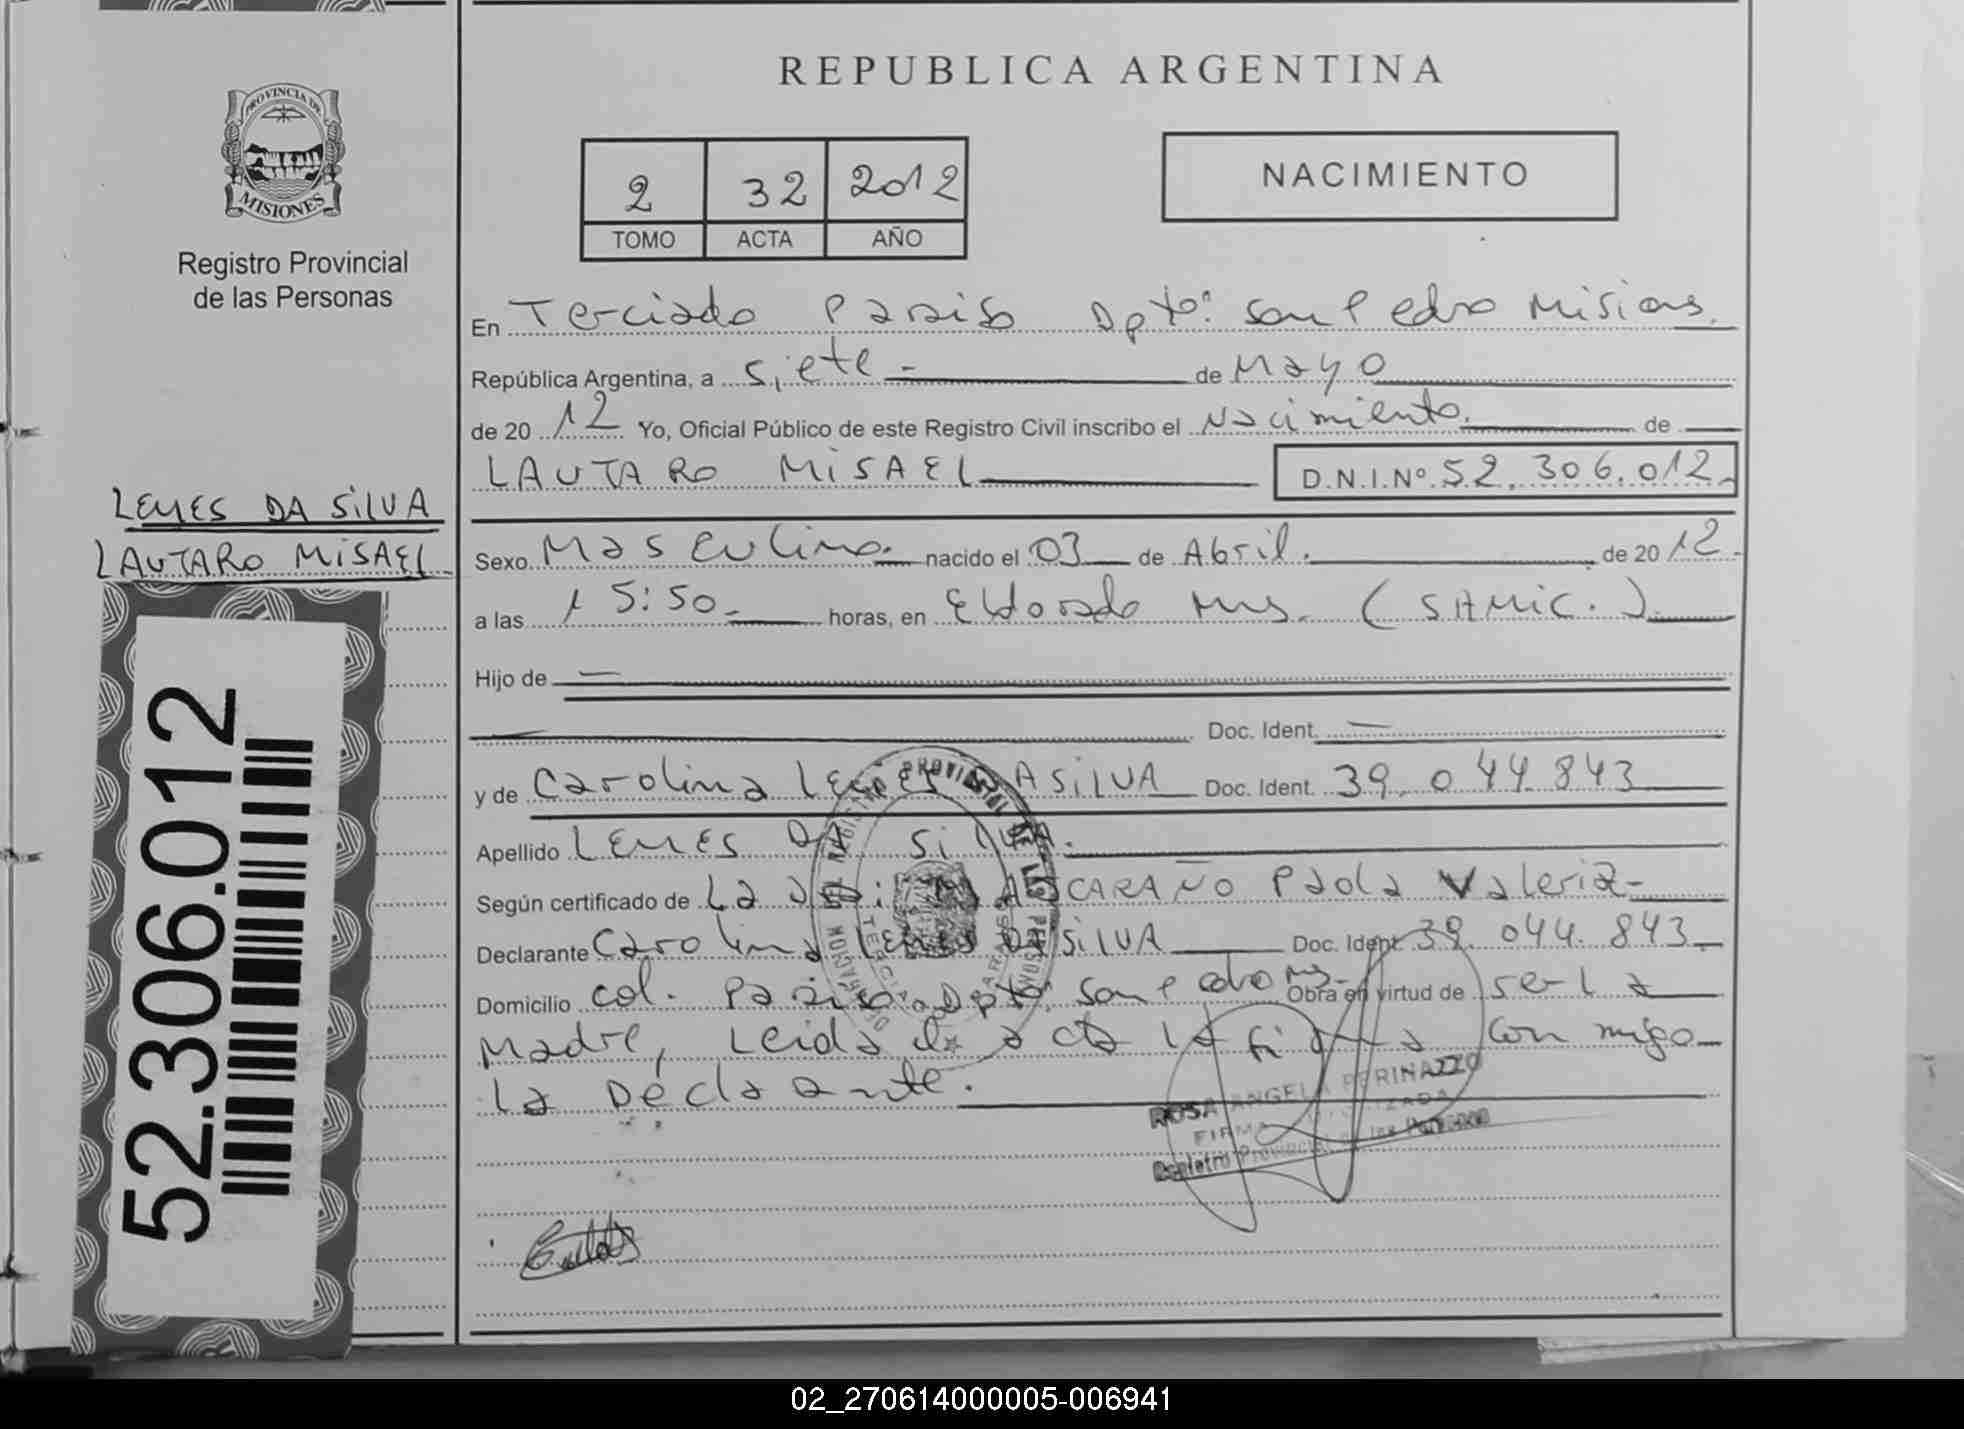 REPUBLICA ARGENTINA
PROVINCIA DE
MISIONES
Registro Provincial
de las Personas
2 32 2012
TOMO ACTA AÑO
NACIMIENTO
En Terciado Paraiso Dpto. San Pedro Misiones.
República Argentina, a siete - de Mayo
de 20 12 Yo, Oficial Público de este Registro Civil inscribo el Nacimiento. de
LAUTARO MISAEL D.N.I.Nº 52.306.012.
LEMES DA SILVA
LAUTARO MISAEL
Sexo Masculino. nacido el 03 de Abril. de 20 12.
a las 15:50. horas, en Eldorado Mns. (SAMIC.).
Hijo de —
Doc. Ident. —
y de Carolina LEMES DA SILVA Doc. Ident. 39.044.843
Apellido LEMES DA SILVA.
Según certificado de La Paola Valeria-
Declarante Carolina LEMES DA SILVA Doc. Ident. 39.044.843
Domicilio col. Paraiso Dpto. San Pedro Ms. Obra en virtud de ser la
Madre, Leida el acta la firma con migo
la Declarante.
ROSA ANGELA PERINAZZO
FIRMA AUTORIZADA
Registro Provincial de las Personas
52.306.012
02_270614000005-006941